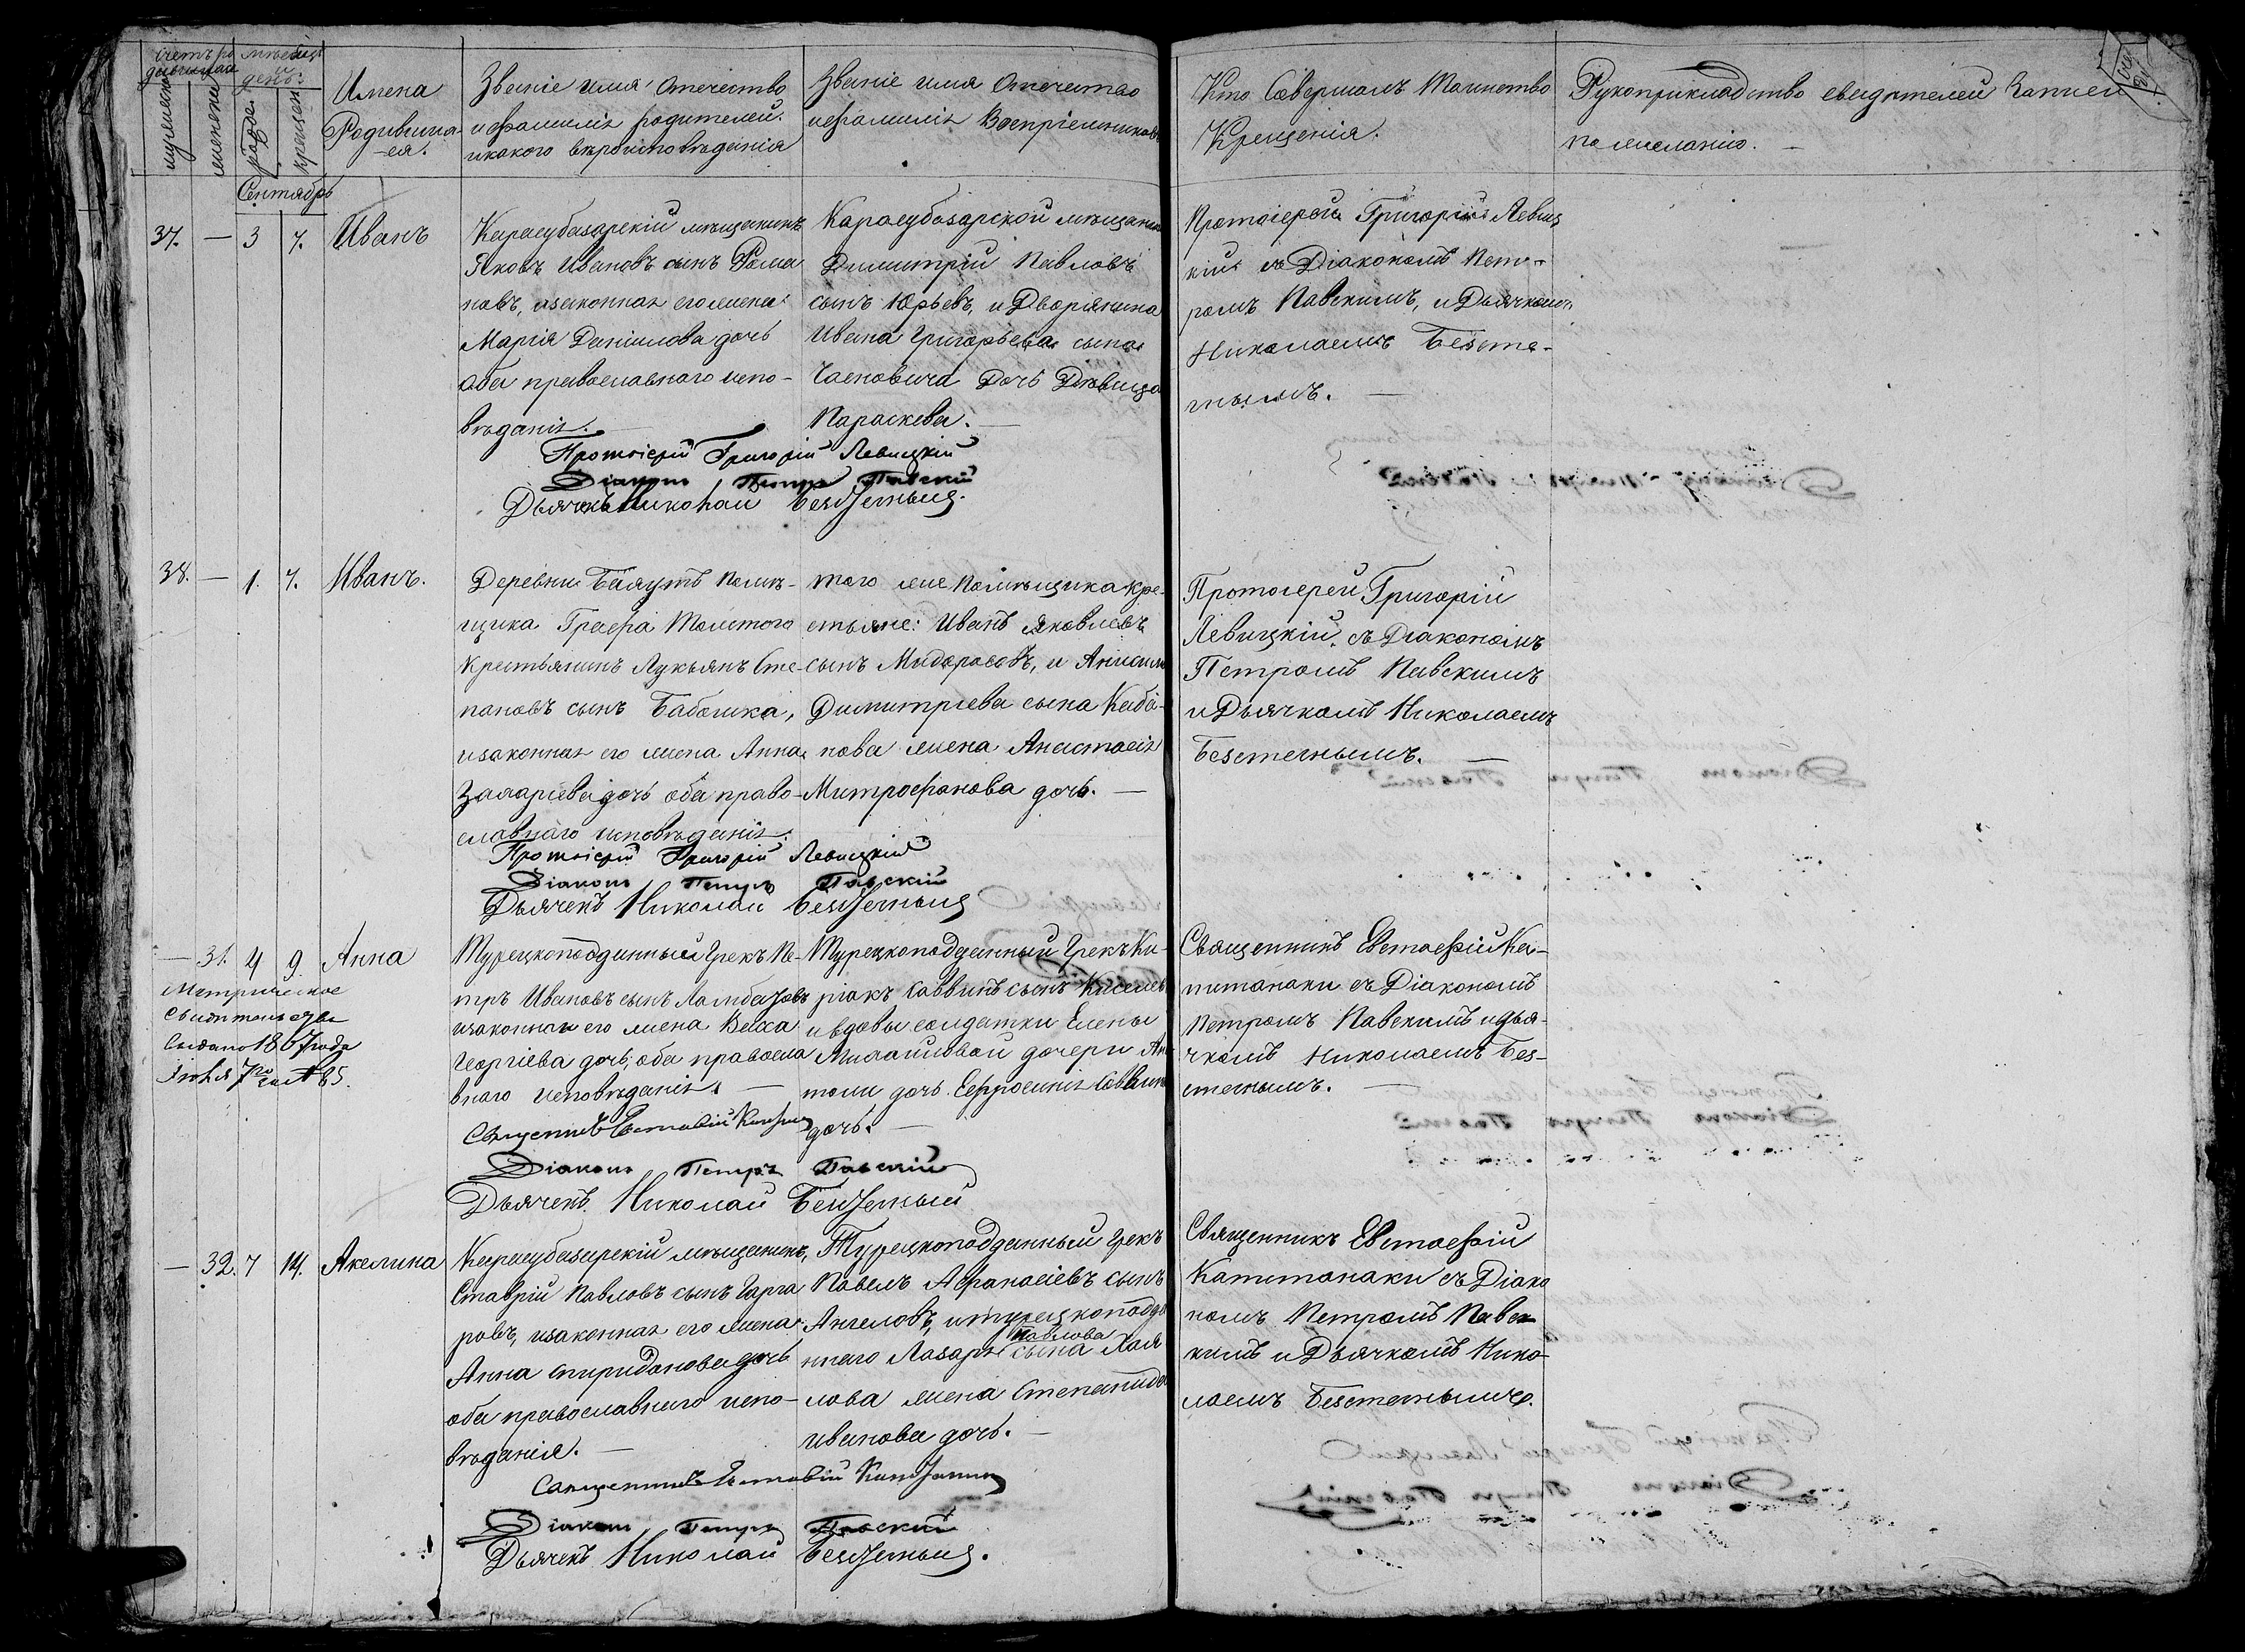 Счетъ ро
дившихся
мужеска
женска
мѣсяцъ
и
день:
рожде.
крещен.
Имена
Родивших
-ся.
Званіе имя отечество
и фамилія родителей.
и какого вѣроисповѣданія
Званіе имя отечество
и фамилія Воспріемниковъ
Кто Совершалъ Таинство
Крещенія.
Рукоприкладство свидѣтелей записи
по желанію. —
Сентябрь
37. — 3 7. Иванъ
Карасубазарскій мѣщанинъ
Яковъ Ивановъ сынъ Рома
новъ, и законная его жена
Марія Даніилова дочь
оба православнаго испо-
вѣданія. —
Карасубазарской мѣщанин
Димитрій Павловъ
сынъ Юрьевъ, и Дворянина
Ивана Григорьева сына
Дочь Дѣвица
Параскева. —
Протоіерей Григорій Левиц
кій съ Діакономъ Пет-
ромъ Павскимъ, и Дьячкомъ
Николаемъ Безте-
чнымъ. —
Протоіерей Григорій Левицкій
Діаконъ Петръ Павскій
Дьячекъ Николай Безтечный.
38. — 1. 7. Иванъ.
Деревни Баяутъ помѣ-
щика Графа Толстого
крестьянинъ Лукьянъ Сте-
пановъ сынъ Бабошка,
и законная его жена Анна
Захаріева дочь оба право-
славнаго исповѣданія.
того же помѣщика кре-
стьяне: Иванъ Яковлевъ
сынъ и Анисим
Димитріева сына Каба-
нова жена Анастасія
Митрофанова дочь. —
Протоіерей Григорій
Левицкій, съ Діакономъ
Петромъ Павскимъ
и Дьячкомъ Николаемъ
Безтечнымъ. —
Протоіерей Григорій Левицкій
Діаконъ Петръ Павскій
Дьячекъ Николай Безтечный
— 31. 4 9. Анна
Метрическое
Свидетельство
выдано 1867 года
Іюня 7го за № 85.
Турецкоподданный Грекъ Пе-
тръ Ивановъ сынъ Ламбазовъ
и законная его жена Васса
Георгіева дочь, оба правосла
внаго исповѣданія. —
Турецкоподданный Грекъ Ки-
ріакъ Саввинъ сынъ
и вдовы солдатки Елены
Михайловой дочери Ан
тони дочь Ефросинія Саввина
дочь. —
Священникъ Евстафій Ка-
питанаки съ Діакономъ
Петромъ Павскимъ и дья-
чкомъ Николаемъ Без-
течнымъ. —
Священникъ Евстафій
Діаконъ Петръ Павскій
Дьячекъ Николай Безтечный
— 32. 7 14. Акелина
Карасубазарскій мѣщанинъ,
Ставрій Павловъ сынъ Гарга
ровъ, и законная его жена
Анна Спиридонова дочь
оба православнаго испо-
вѣданія. —
Турецкоподданный Грекъ
Павелъ Афанасіевъ сынъ
Ангеловъ, и турецкоподда
Павлова
ннаго Лазаря сына Халя
лова жена Степанида
Иванова дочь. —
Священникъ Евстафій
Капитанаки съ Діако
номъ Петромъ Павс
кимъ и Дьячкомъ Нико-
лаемъ Безтечнымъ.
Священникъ Евстафій Капитанаки
Діаконъ Петръ Павскій
Дьячекъ Николай Безтечный.